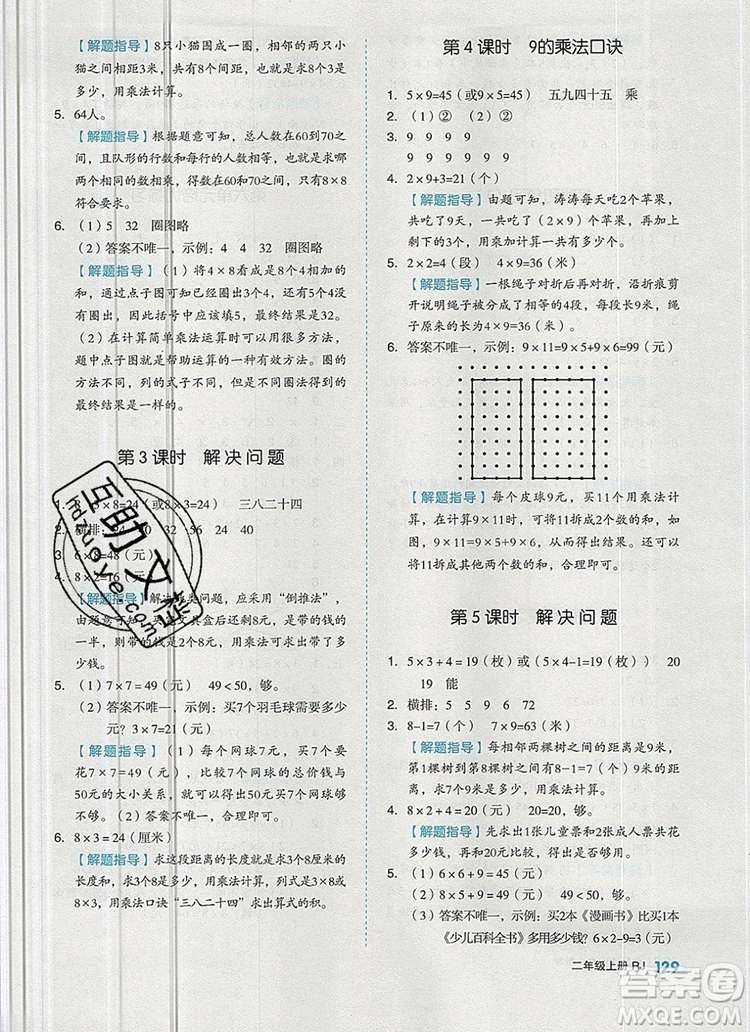 【解题指导】8只小猫围成一圈，相邻的两只
小猫之间相距3米，共有8个间距，也就是求8个3是
多少，用乘法计算。
5. 64人。
【解题指导】根据题意可知，总人数在60到70之
间，且队形的行数和每行的人数相等，也就是求哪
两个相同的数相乘，得数在60和70之间，只有8×8
符合要求。
6. （1）5　32　圈图略
（2）答案不唯一，示例：4　4　32　圈图略
【解题指导】（1）将4×8看成是8个4相加的
和，通过点子图可知，已经圈出3个4，还需要圈
出5个4，因此括号中应该填5，最终结果是32。
（2）在计算简单乘法运算时可以用很多方法，
题中点子图就是帮助运算的一种有效方法。圈的
方法不同，列的式子不同，但是用不同圈法得到的
最终结果是一样的。
第3课时　解决问题
1. 3×8=24（或8×3=24）　三八二十四
2. 横排：24　40　32　56　24　40
3. 6×8=48（元）
4. 8×2=16（元）
【解题指导】解决此类问题，应采用“倒推法”，
由题意可知，买完文具盒后还剩8元，是带的钱的
一半，所以，带的钱数为2个8元，用乘法可求出带了多
少钱。
5. （1）7×7=49（元）　49<50，够。
（2）答案不唯一，示例：买7个羽毛球需要多少
元？3×7=21（元）
【解题指导】（1）每个网球7元，买7个要
花7×7=49（元），比较7个网球的总价钱与
50元的大小关系，就可以知道带50元，买7个网球
够不够。（2）答案不唯一，合理即可。
6. 8×3=24（厘米）
【解题指导】求这段距离的长度就是求3个8厘米
的长度和，也就是求3个8是多少，列式是3×8或
8×3，用乘法口诀“三八二十四”求出算式的积。
第4课时　9的乘法口诀
1. 5×9=45（或9×5=45）　五九四十五　乘
2. （1）②　（2）②
3. 9　9　9　9
9　9　9　9　9　9
4. 2×9+3=21（个）
【解题指导】由题可知，涛涛每天吃2个苹果，
共吃了9天，一共吃了（2×9）个苹果，再加上
剩下的3个，用乘加计算一共有多少个。
5. 2×2=4（段）　4×9=36（米）
【解题指导】一根绳子对折后再对折，沿折痕剪
开说明绳子被剪成相等的4段，每段长9米，绳
子原来的长度是4个9米，即4×9=36（米）。
6. 答案不唯一，示例：9×11=9×5+9×6=99（元）
【解题指导】每个皮球9元，买11个用乘法计
算。在计算9×11时，可以画一画或将11分成
两个数的和，如，9×11可以写成9×5+9×6
的形式，从而得出结果。也可以将11写成其
他两个数的和，再进行计算。
第5课时　解决问题
1. 5×3+4=19（枚）或（5×4-1=19（枚））　20
19　能
2. 横排：5　5　9　6　72
3. 8-1=7（个）　7×9=63（米）
【解题指导】每相邻两棵树之间的距离是9米，
第1棵到第8棵树之间共有8-1=7（个）间距，
求7个9米是多少，用乘法计算。
4. 8×2+4=20（元）　20=20，够。
【解题指导】先求出1张儿童票和2张成人票共花
多少钱，再与20元作比较。
5. （1）6×6+9=45（元）
（2）9×5+4=49（元）　49<50，够。
（3）答案不唯一，示例：买2本《漫画书》比买1本
《少儿百科全书》多用多少钱？6×2-9=3（元）
二年级上册 BJ　129
互助文档
hdzuoye.com
答案圈
MXQE.COM